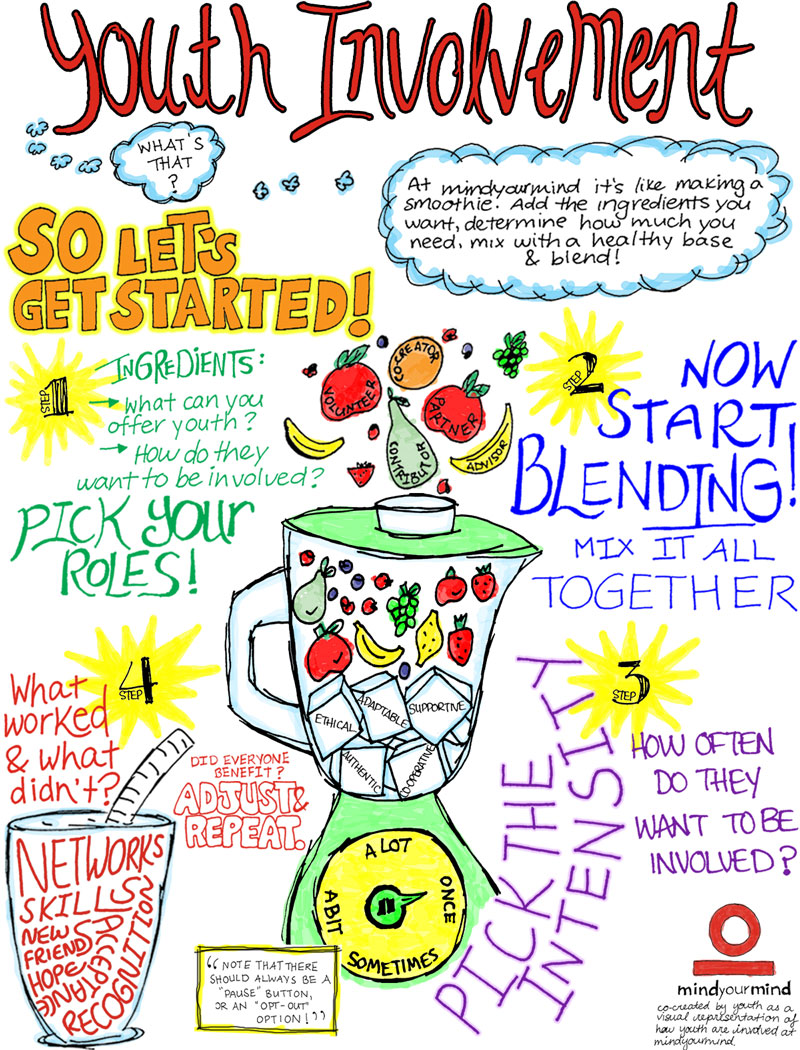 Youth Involvement
WHAT'S
THAT
?
At mindyourmind it's like making a
smoothie. Add the ingredients you
want, determine how much you
need, mix with a healthy base
& blend!
SO LET'S
GET STARTED!
STEP 1
INGREDIENTS:
→ what can you
offer youth?
→ How do they
want to be involved?
PICK YOUR
ROLES!
VOLUNTEER
CO-CREATOR
PARTNER
CONTRIBUTOR
ADVISOR
STEP 2
NOW
START
BLENDING!
MIX IT ALL
TOGETHER
ETHICAL
ADAPTABLE
SUPPORTIVE
AUTHENTIC
CO-OPERATIVE
STEP 3
PICK THE
INTENSITY
HOW OFTEN
DO THEY
WANT TO BE
INVOLVED?
A LOT
ONCE
SOMETIMES
A BIT
STEP 4
What
worked
& what
didn't?
DID EVERYONE
BENEFIT?
ADJUST &
REPEAT.
NETWORKS
SKILLS
NEW
FRIENDS
HOPE
ACCEPTANCE
RECOGNITION
"NOTE THAT THERE
SHOULD ALWAYS BE A
"PAUSE" BUTTON,
OR AN "OPT-OUT"
OPTION!"
mindyourmind
co-created by youth as a
visual representation of
how youth are involved at
mindyourmind.